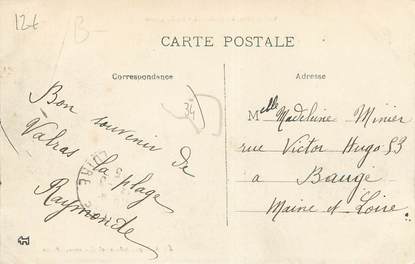 12€
B-
CARTE POSTALE
Correspondance
Adresse
34
Bon souvenir de
Valras la plage
Raymonde
LOIRE
Mlle Madeleine Minier
rue Victor Hugo 53
a Baugé
Maine et Loire